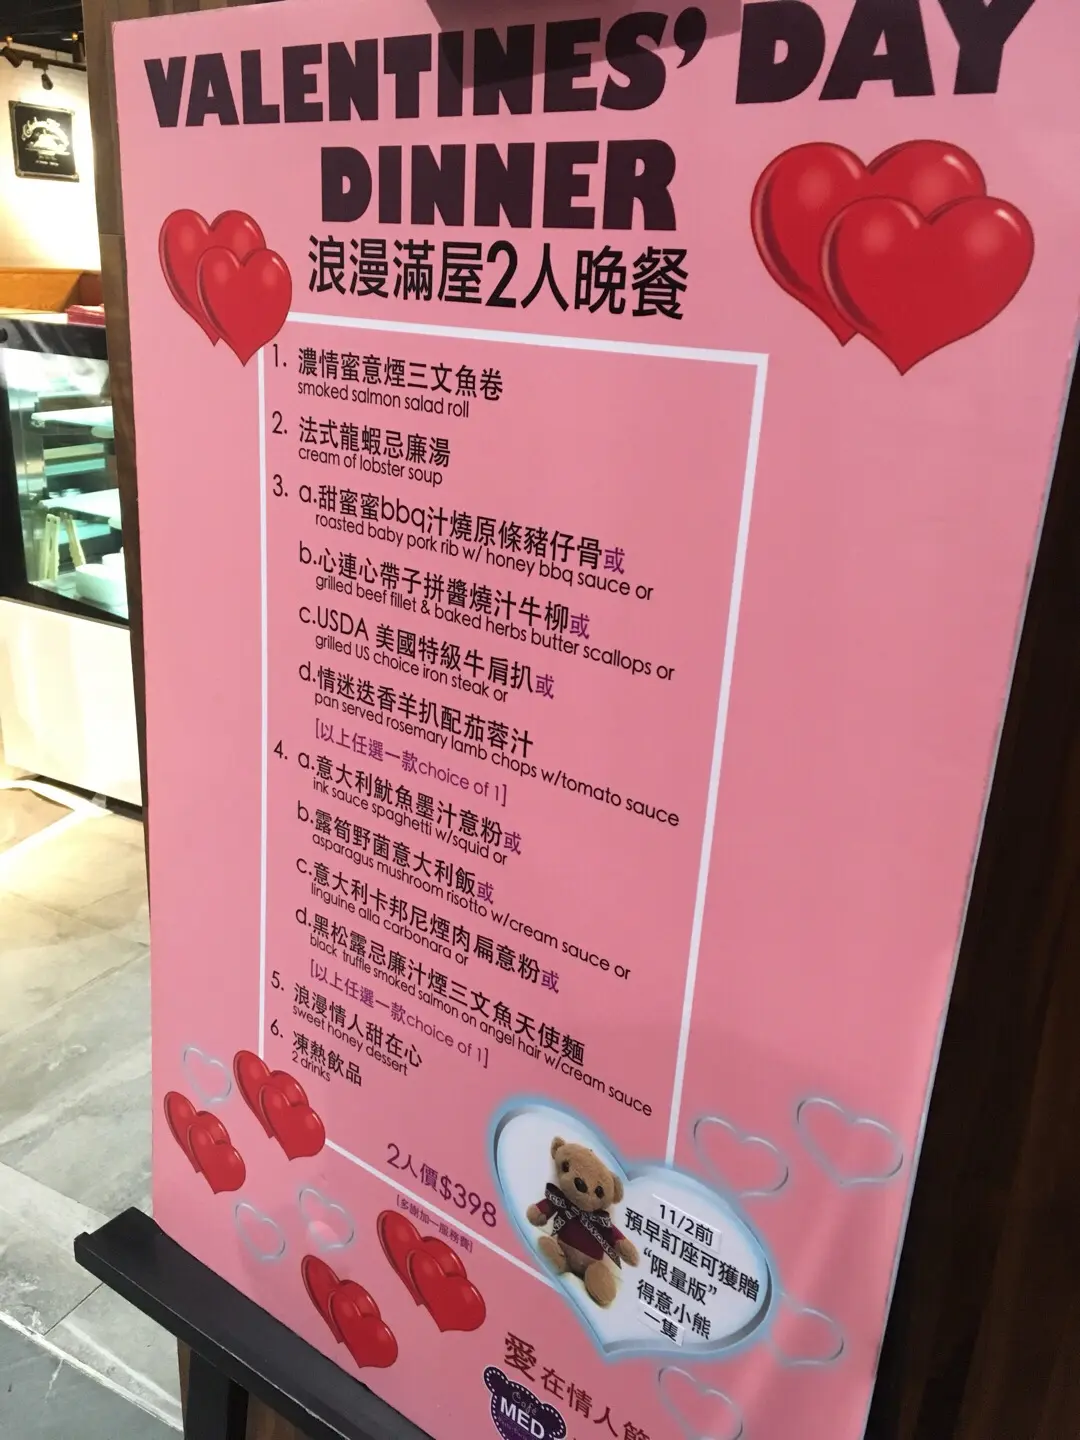 VALENTINES' DAY
DINNER
浪漫滿屋2人晚餐
1. 濃情蜜意煙三文魚卷
smoked salmon salad roll
2. 法式龍蝦忌廉湯
cream of lobster soup
3. a.甜蜜蜜bbq汁燒原條豬仔骨或
roasted baby pork rib w/ honey bbq sauce or
b.心連心帶子拼醬燒汁牛柳或
grilled beef fillet & baked herbs butter scallops or
c.USDA 美國特級牛肩扒或
grilled US choice iron steak or
d.情迷迭香羊扒配茄蓉汁
pan served rosemary lamb chops w/tomato sauce
[以上任選一款choice of 1]
4. a.意大利魷魚墨汁意粉或
ink sauce spaghetti w/squid or
b.露筍野菌意大利飯或
asparagus mushroom risotto w/cream sauce or
c.意大利卡邦尼煙肉扁意粉或
linguine alla carbonara or
d.黑松露忌廉汁煙三文魚天使麵
black truffle smoked salmon on angel hair w/cream sauce
[以上任選一款choice of 1]
5. 浪漫情人甜在心
sweet honey dessert
6. 凍熱飲品
2 drinks
2人價$398
[多謝加一服務費]
11/2前
預早訂座可獲贈
“限量版”
得意小熊
一隻
愛在情人節
Café
MED